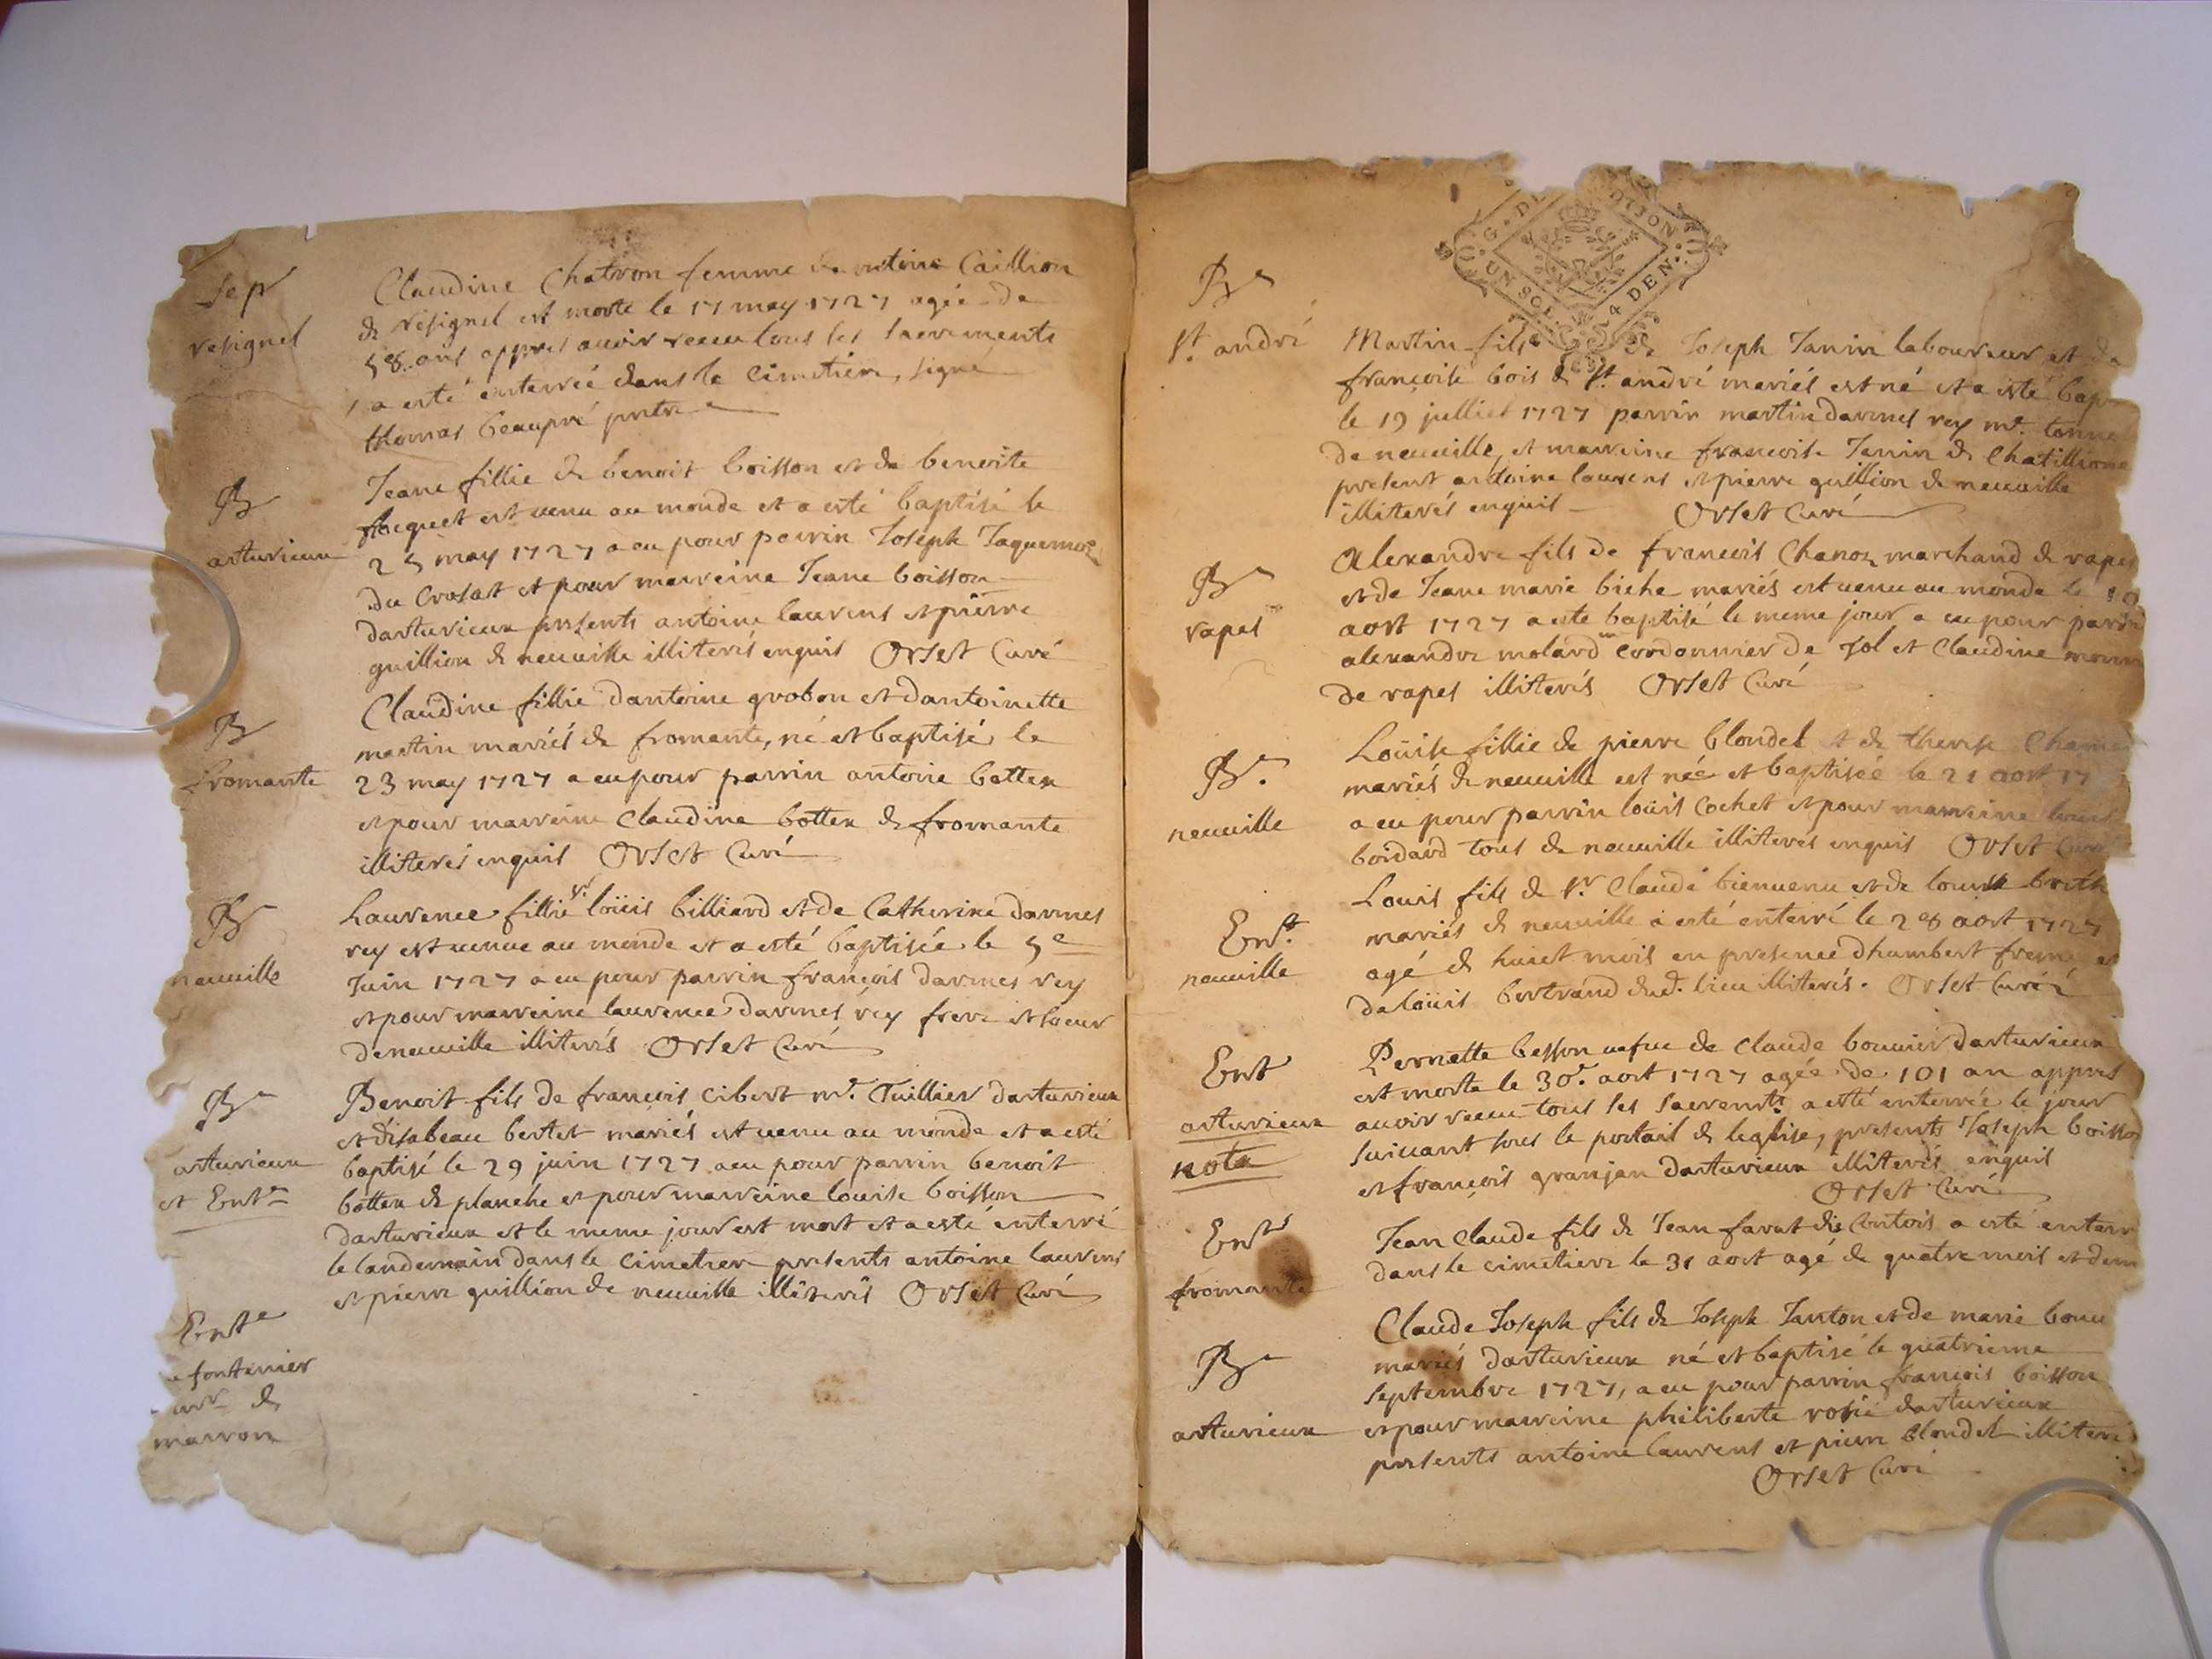 Sep
resignel
Claudine Chatron femme de antoine Caillion
de résignel est morte le 17 may 1727 agée de
58 ans appres avoir receu tous les sacrements
a esté enterrée dans le cimetiere, signé
thomas beaupré pretre
B
arturieux
Jeane fillie de benoit boisson et de benoite
est venu au monde et a esté baptisé le
25 may 1727 a eu pour parrin Joseph Jaquemoz
du Crosat et pour marreine Jeane boisson
darturieux presents antoine laurens et pierre
guillion de neuville illiterés enquis Orset Curé
B
fromante
Claudine fillie dantoine grobon et dantoinette
martin mariés de fromante, né et baptisé le
23 may 1727 a eu pour parrin antoine bottex
et pour marreine Claudine bottex de fromante
illiterés enquis Orset Curé
B
neuville
Laurence fillie Sr. loüis billiard et de Catherine darmes
rey est venue au monde et a esté baptisée le 5e
Juin 1727 a eu pour parrin françois darmes rey
et pour marreine laurence darmes rey frere et soeur
de neuville illiterés Orset Curé
B
arturieux
et Ente
Benoit fils de françois cibert mr. Tuillier darturieux
et disabeau bertet mariés est venu au monde et a esté
baptisé le 29 juin 1727 a eu pour parrin benoit
bottex de planche et pour marreine louise boisson
darturieux et le meme jour est mort et a esté enterré
le landemain dans le cimetier presents antoine laurens
et pierre guillion de neuville illiterés Orset Curé
Ente
fontenier
de
marron
G. DE DIJON
UN SOL. 4 DEN.
B
St. andré
Martin fils de Joseph Janin laboureur et de
françoise bois de St. andré mariés est né et a esté bap
le 19 julliet 1727 parrin martin darmes rey mr. tonne
de neuville, et marreine francoise Janin de Chatillione
present antoine laurens et pierre guillion de neuville
illiterés enquis Orset Curé
B
rapes
Alexandre fils de francois Chanoz marchand de rapes
et de Jeane marie biche mariés est venu au monde le
aost 1727 a esté baptisé le meme jour a eu pour parrin
alexandre molard cordonnier de Jol et Claudine
de rapes illiterés Orset Curé
B.
neuville
Loüise fillie de pierre blondel et de therese
mariés de neuville est née et baptisée le 21 aost 17
a eu pour parrin loüis Cochet et pour marreine
boidard tous de neuville illiterés enquis Orset Curé
Ent.
neuville
Louis fils de Sr. Claude bienvenu et de louise
mariés de neuville a esté enterré le 28 aost 1727
agé de huict mois en presence dhumbert et
de loüis bertrand dud. lieu illiterés. Orset Curé
Ent
arturieux
nota
Pernette besson vefve de Claude bouvier darturieux
est morte le 30e. aost 1727 agée de 101 an appres
avoir receu tous les sacremts. a esté enterrée le jour
suivant sous le portail de leglise, presents Joseph boisson
et françois granjan darturieux illiterés enquis
Orset Curé
Ent
fromante
Jean Claude fils de Jean favat dis Contois a esté enterr
dans le cimetiere le 31 aost agé de quatre mois et dem
B
arturieux
Claude Joseph fils de Joseph Janton et de marie bouv
mariés darturieux né et baptisé le quatrieme
septembre 1727, a eu pour parrin francois boisson
et pour marreine philiberte darturieux
presents antoine laurens et pierre blondel illiteré
Orset Curé